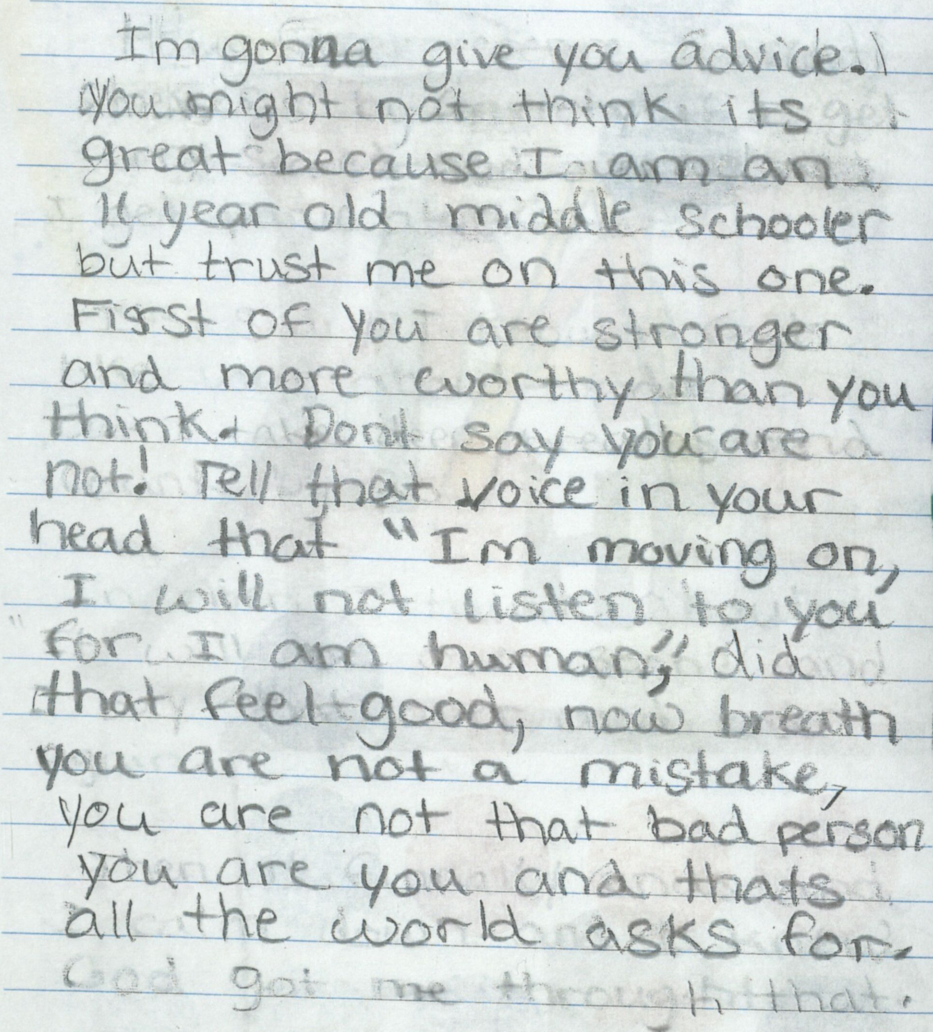 Im gonna give you advice.
you might not think its
great because I am an
11 year old middle schooler
but trust me on this one.
First of you are stronger
and more worthy than you
think. Dont say you are
not! Tell that voice in your
head that "Im moving on,
I will not listen to you
for I am human," did
that feel good, now breath
you are not a mistake,
you are not that bad person
you are you and thats
all the world asks for.
God got me through that.